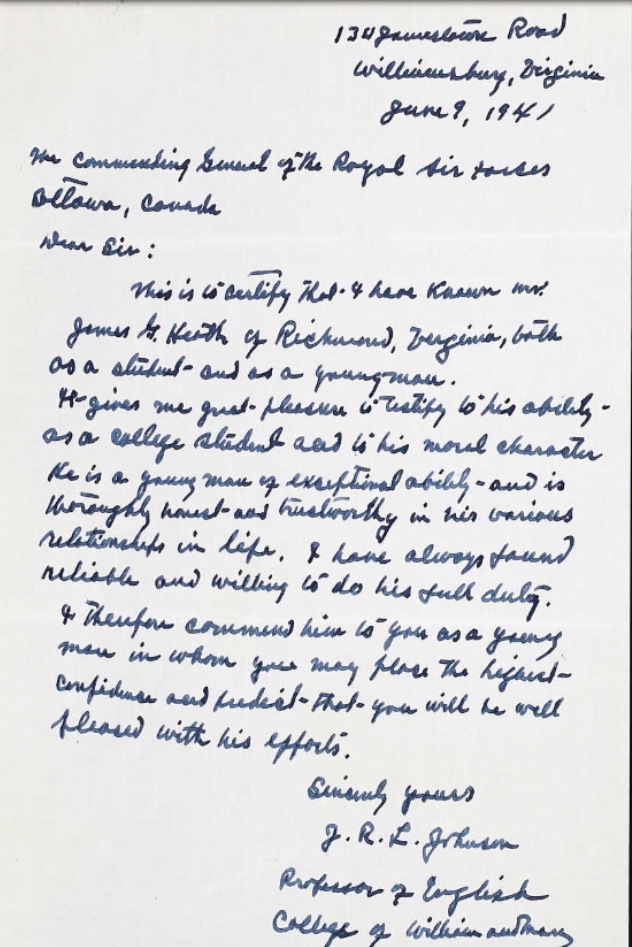 134 Jamestown Road
Williamsburg, Virginia
June 9, 1941
The Commanding General of the Royal Air Forces
Ottawa, Canada
Dear Sir:
This is to certify that I have known Mr.
James G. Heath of Richmond, Virginia, both
as a student and as a young man.
It gives me great pleasure to testify to his ability
as a college student and to his moral character
He is a young man of exceptional ability and is
thoroughly honest and trustworthy in his various
relationships in life. I have always found
reliable and willing to do his full duty.
I therefore commend him to you as a young
man in whom you may place the highest
confidence and predict that you will be well
pleased with his efforts.
Sincerely yours
J. R. L. Johnson
Professor of English
College of William and Mary